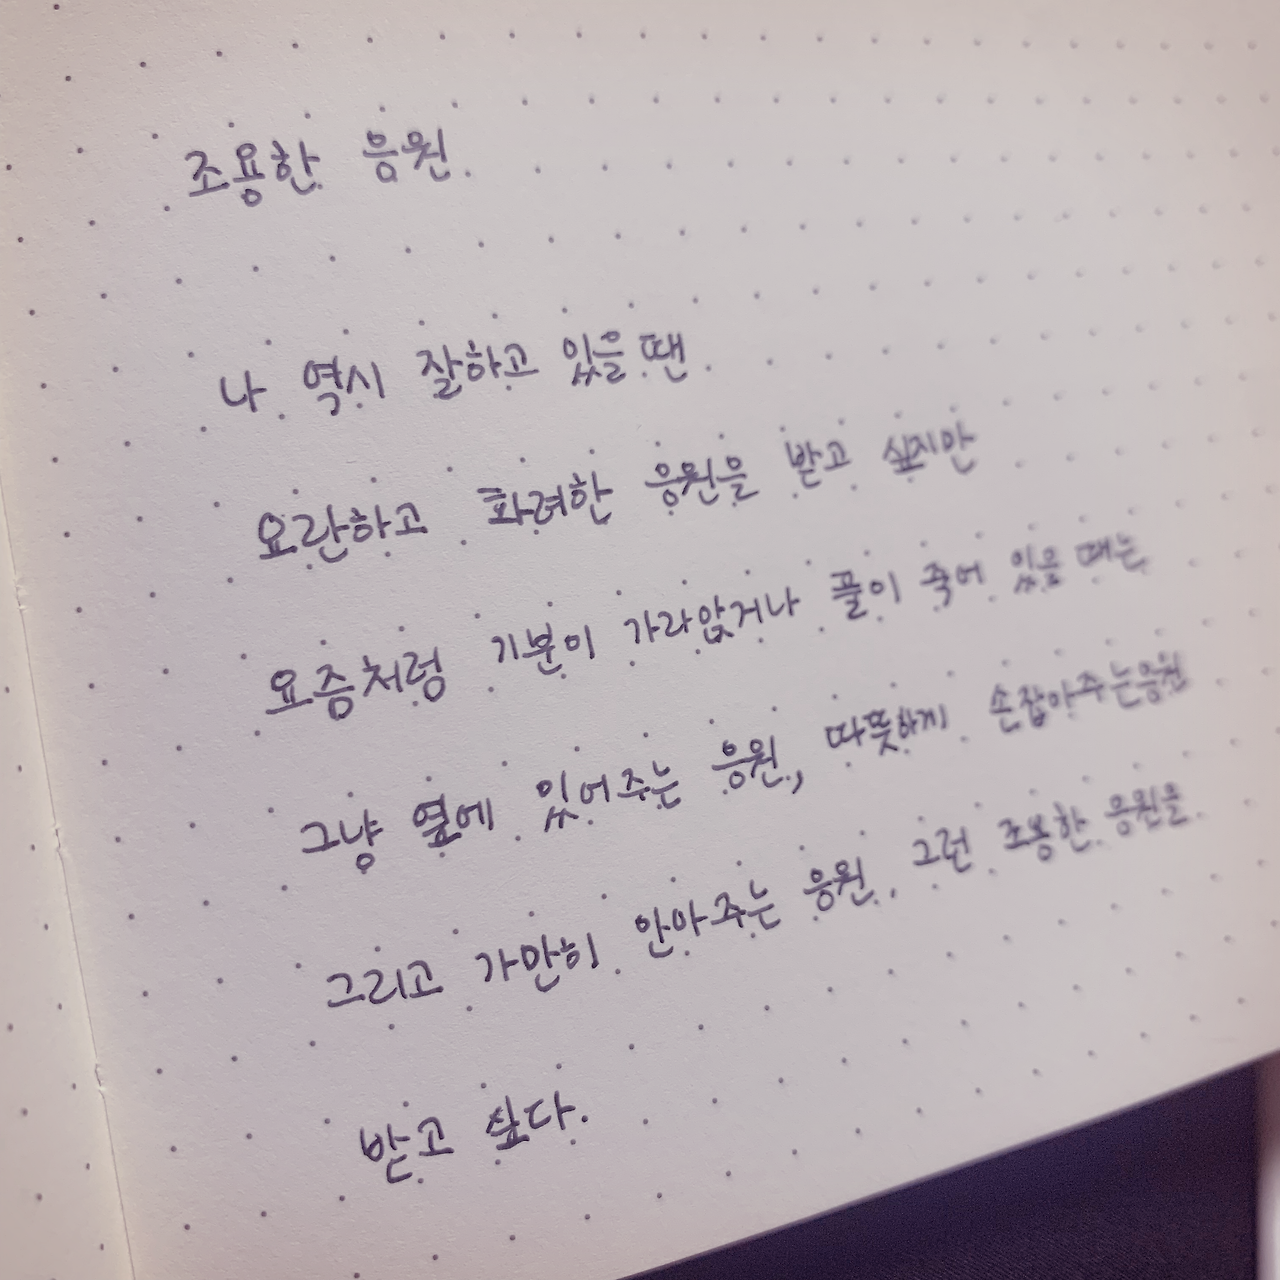 조용한 응원
나 역시 잘하고 있을 땐
요란하고 화려한 응원을 받고 싶지만
요즘처럼 기분이 가라앉거나 풀이 죽어 있을 때는
그냥 옆에 있어주는 응원, 따뜻하게 손잡아주는 응원
그리고 가만히 안아주는 응원. 그런 조용한 응원을
받고 싶다.